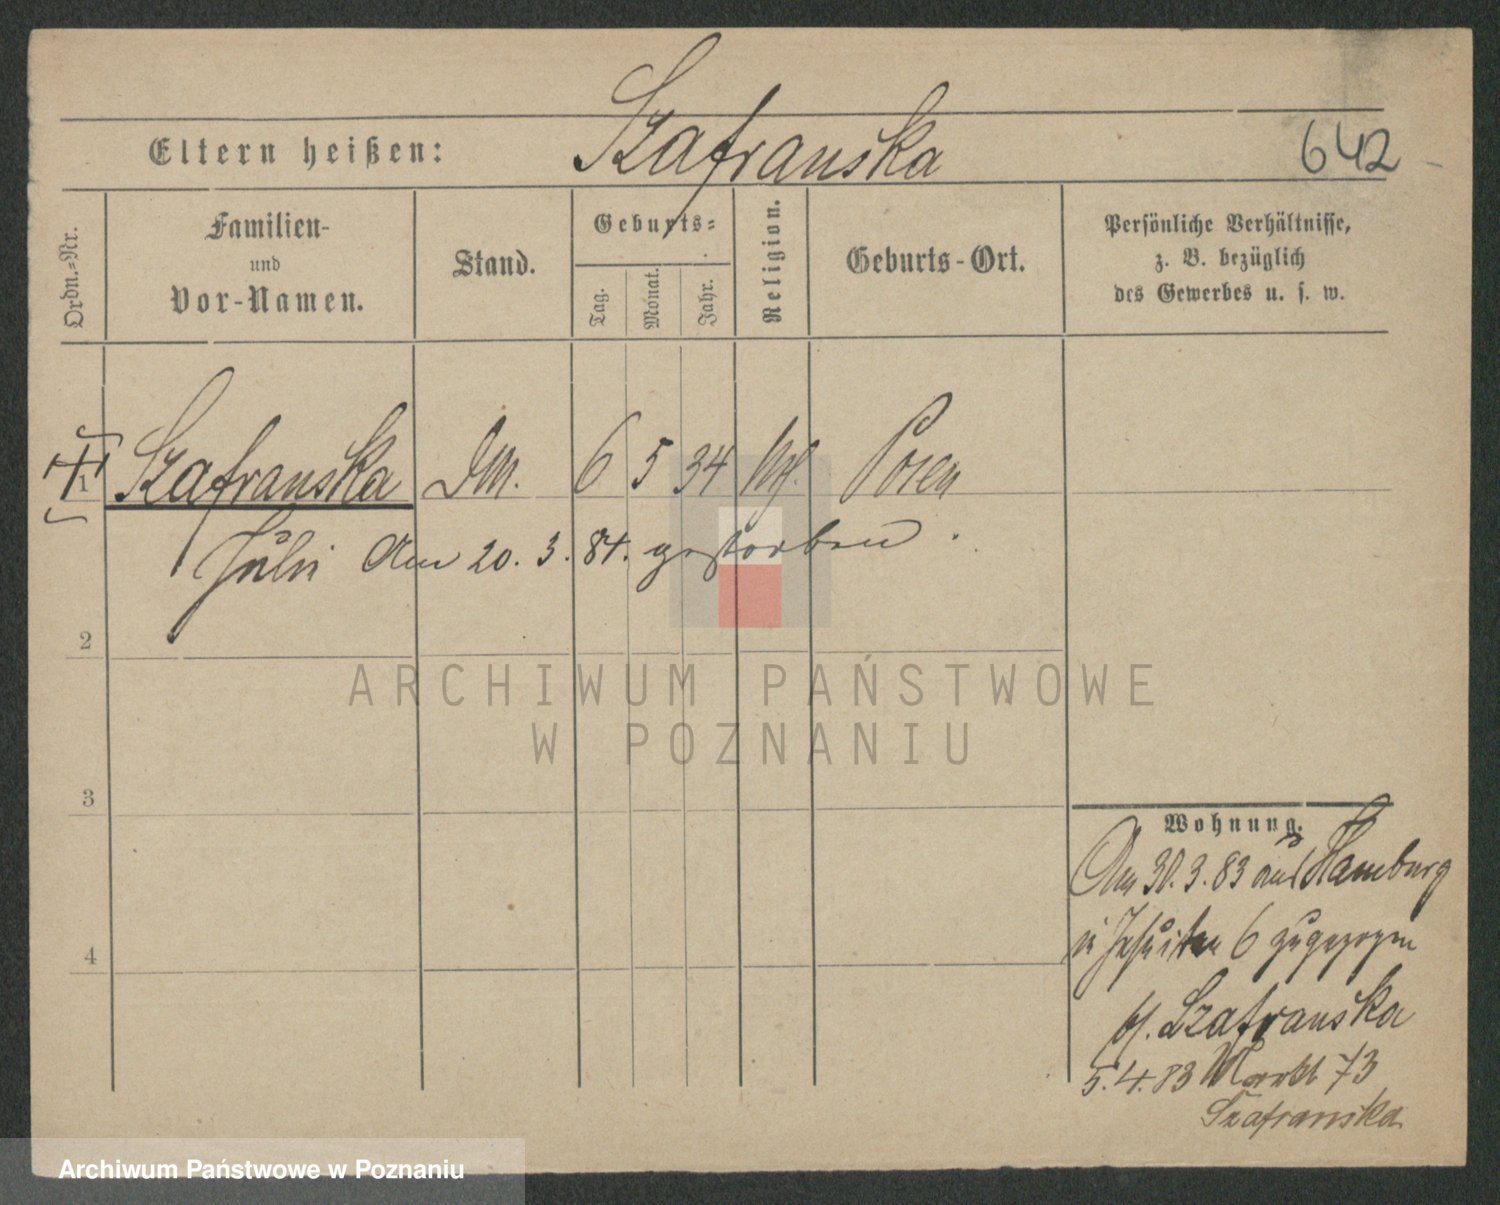 Szafranska
Eltern heißen:
642
Ordn.-Nr.
Familien-
und
Vor-Namen.
Stand.
Geburts-
Tag.
Monat.
Jahr.
Religion.
Geburts-Ort.
Persönliche Verhältnisse,
z. B. bezüglich
des Gewerbes u. s. w.
1 Szafranska 6 5 34 Posen
Am 20. 3. 84. gestorben.
2
3
4
Wohnung.
Am 30. 3. 83 aus Hamburg
in Jesuiten 6 zugezogen
bei Szafranska
5. 4. 83 Markt 73
Szafranska
ARCHIWUM PAŃSTWOWE
W POZNANIU
Archiwum Państwowe w Poznaniu